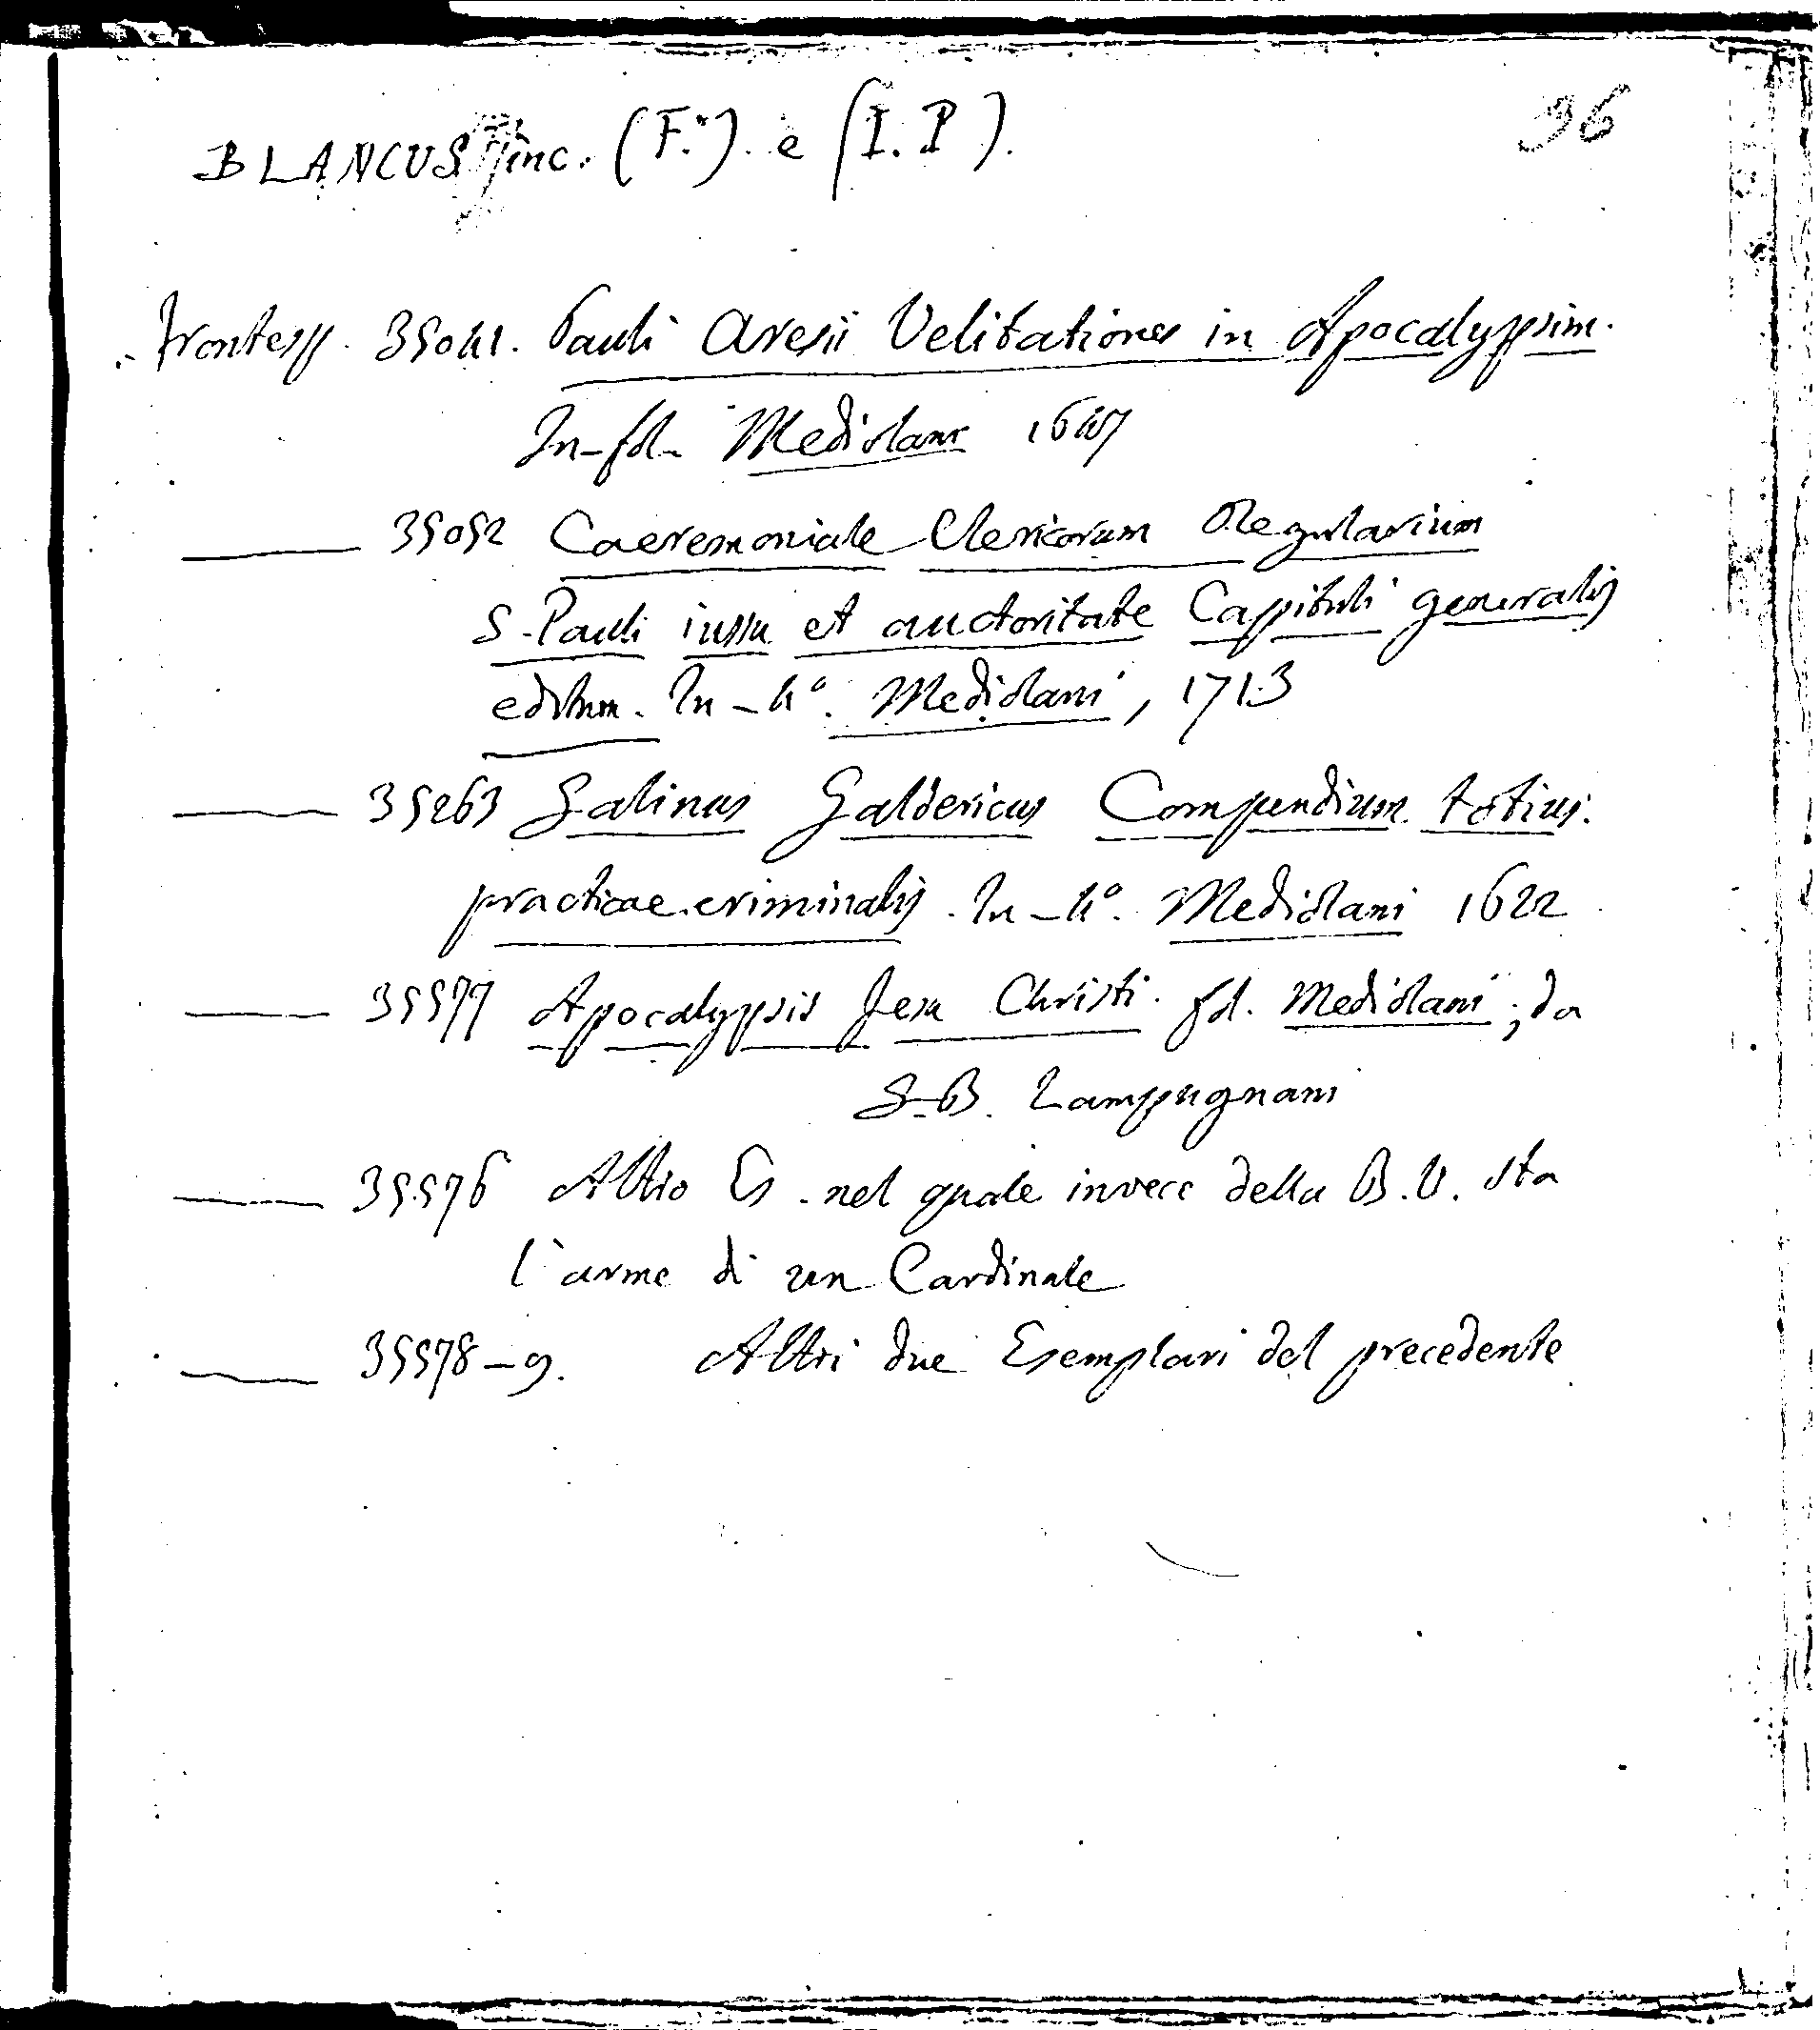 96
BLANCUS inc. (F.º). e (I. P).
Frontesp. 35041. Pauli Aresii Velitationes in Apocalypsim.
In-fol. Mediolani 1647
35052 Caeremoniale Clericorum Regularium
S. Pauli iussu et auctoritate Capituli generalis
editum. In-4º. Mediolani, 1713
35263 Galinus Galdericus Compendium totius.
practicae criminalis. In-4º. Mediolani 1622
35577 Apocalypsis Jesu Christi. fol. Mediolani; da
G.B. Lampugnani
35576 Altro Es. nel quale invece della B.V. sta
l'arme di un Cardinale
35578-9. Altri due Esemplari del precedente